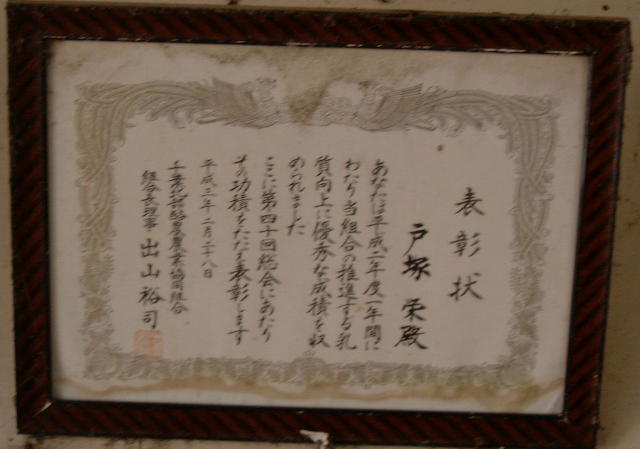 表彰状
戸塚 栄殿
あなたは平成二年度一年間に
わたり当組合の推進する乳
質向上に優秀な成績を収
められました
ここに第四十回総会にあたり
その功績をたたえ表彰します
平成三年二月二十八日
千葉北部酪農農業協同組合
組合長理事 出山裕司